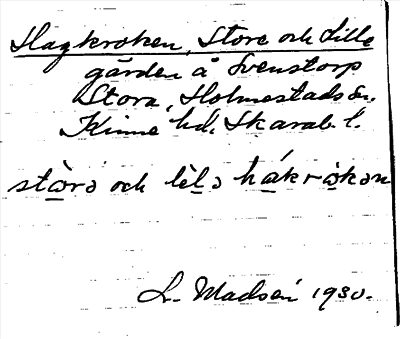 Hagkroken, Store och Lille
gården å Svenstorp
Stora, Holmestads sn.
Kinne hd. Skarab. l.
stòrə och lèlə hákrökən
L. Madsén 1930.